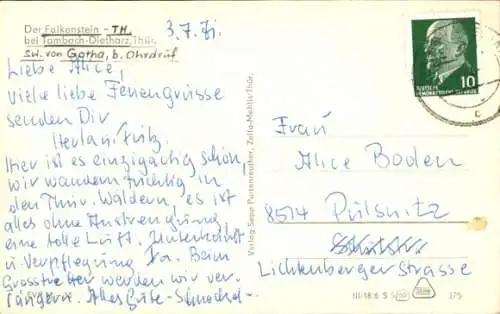 Der Falkenstein - TH.
bei Tambach-Dietharz, Thür.
SW. von Gotha, b. Ohrdruf
3.7.71.
Liebe Alice,
Viele liebe Feriengrüsse
senden Dir
Fritz.
Hier ist es einzigartig schön,
wir wandern tüchtig in
den Thür. Wäldern, es ist
alles ohne Anstrengung
eine tolle Luft. Unterkunft
u. Verpflegung Ia. Beim
wir ver-
längern. Alles Gute -
Verlag Sepp Partenreuther, Zella-Mehlis/Thür.
DEUTSCHE
DEMOKRATISCHE REPUBLIK
10
Frau
Alice Boden
8514 Pulsnitz
Lichtenbergerstrasse
III/18/6 S